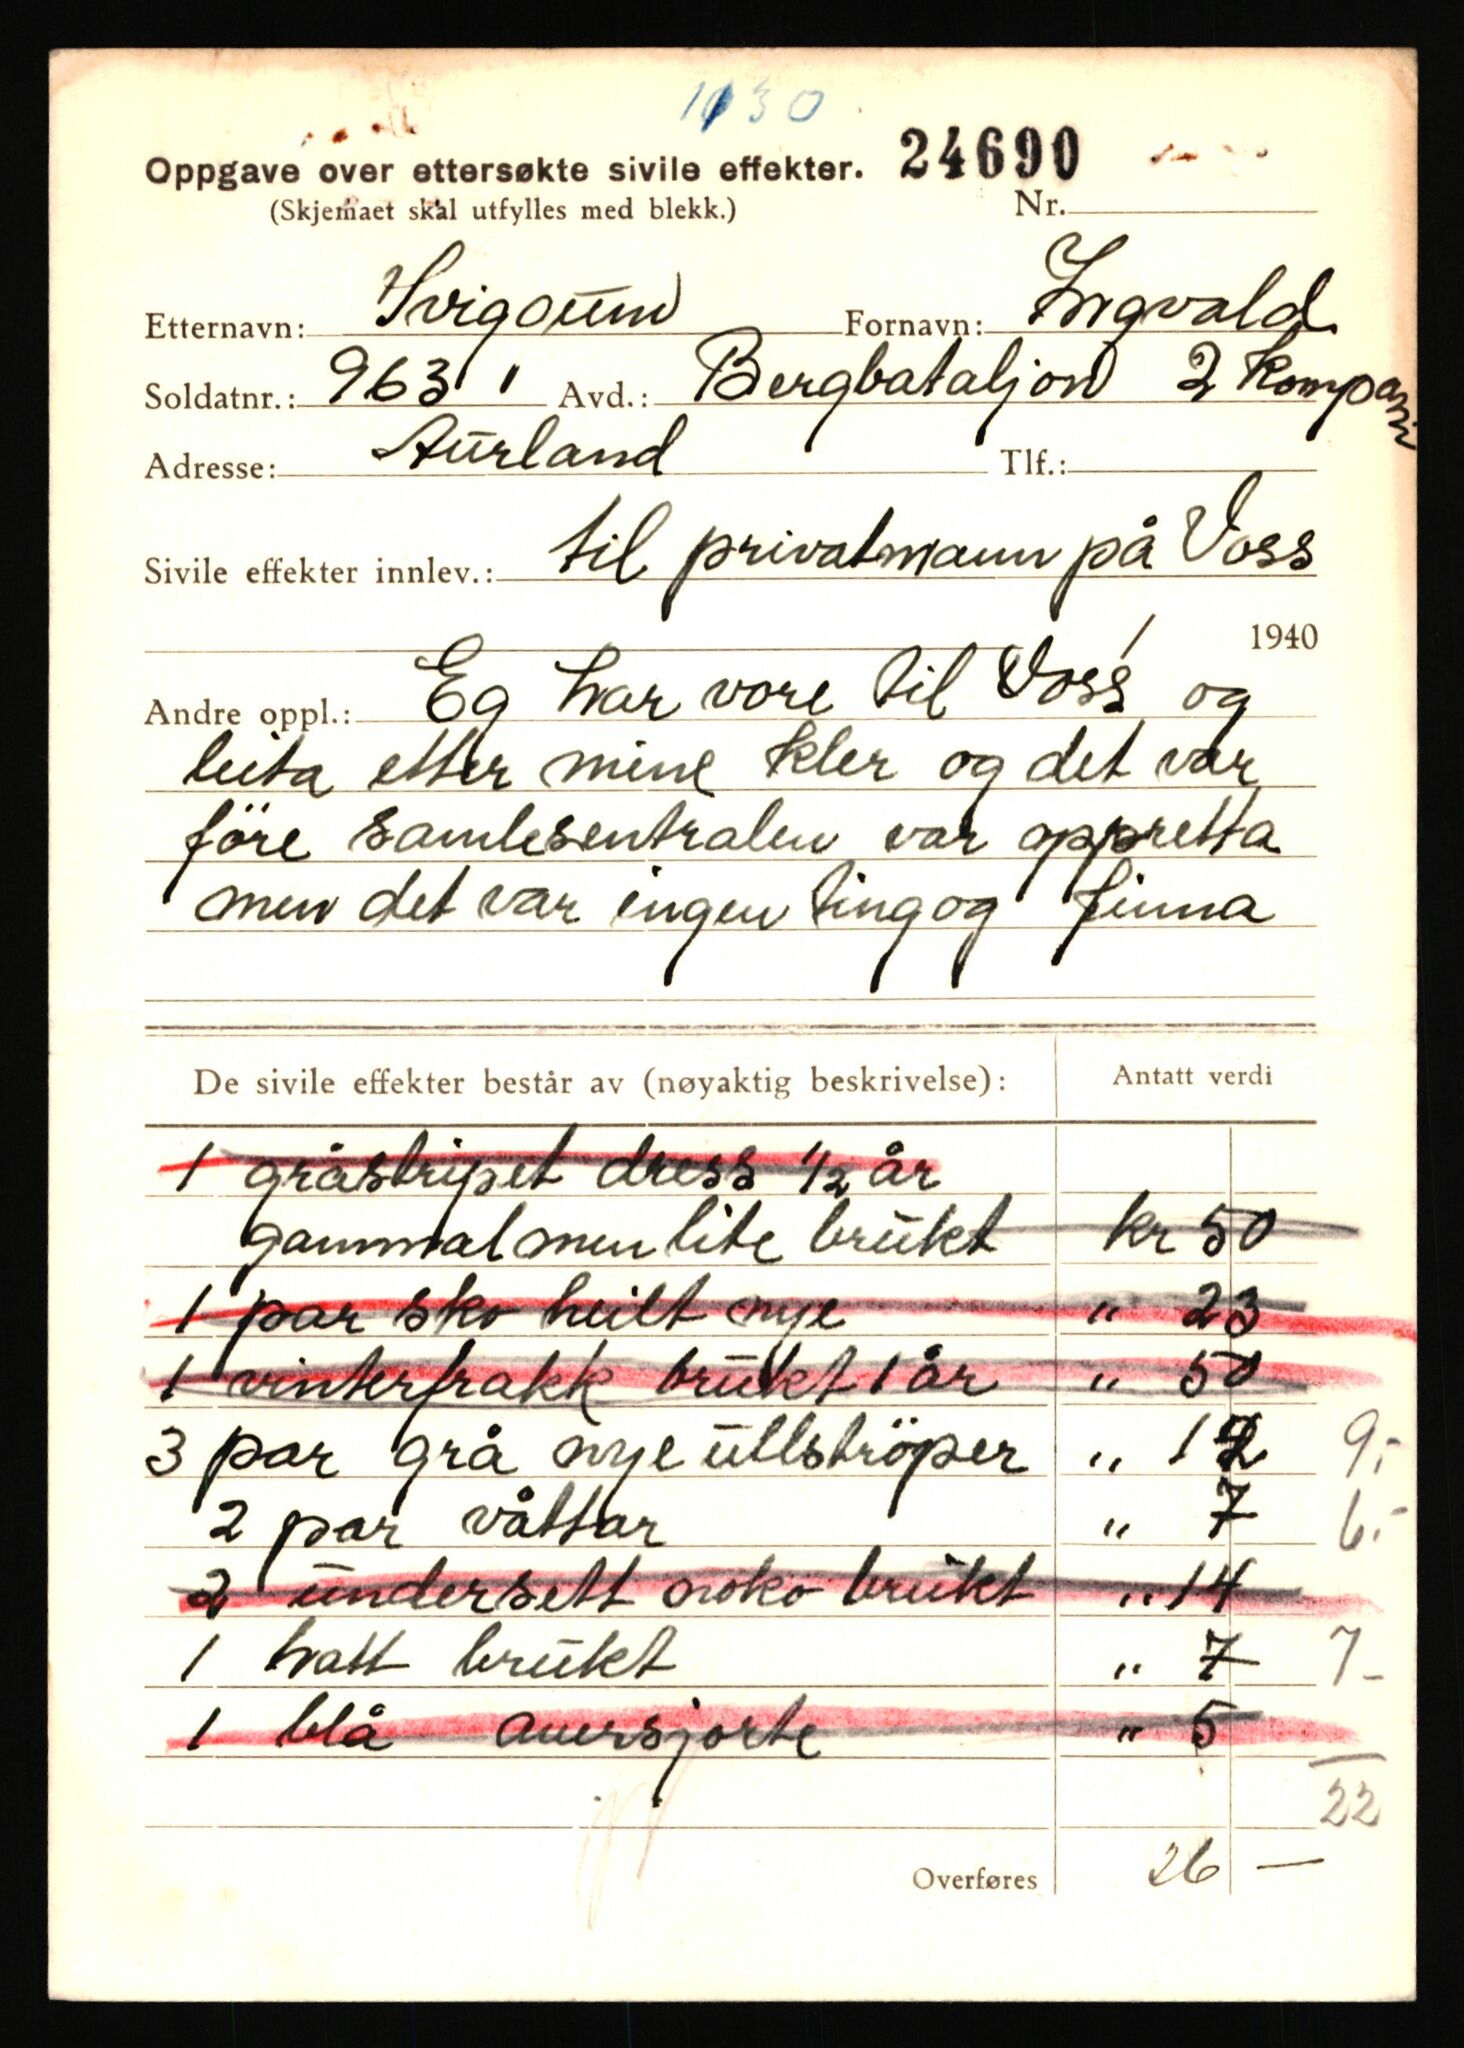 1030
Oppgave over ettersøkte sivile effekter. 24690
(Skjemaet skal utfylles med blekk.) Nr.
Etternavn: Fornavn: Ingvald
Soldatnr.: 963 Avd.: Bergbataljon 2 Kompani
Adresse: Aurland Tlf.:
Sivile effekter innlev.: til privatmann på Voss
/ 1940
Andre oppl.: Eg har vore til Voss og
leita etter mine kler og det var
före samlesentralen var oppretta
men det var ingen ting og finna
De sivile effekter består av (nøyaktig beskrivelse): Antatt verdi
1 gråstripet dress 1/2 år
gammal men lite brukt kr 50
1 par sko heilt nye " 23
1 vinterfrakk brukt 1 år " 50
3 par grå nye ullströper " 12 9.-
2 par våttar " 7 6.-
2 undersett noko brukt " 14
1 hatt brukt " 7 7-
1 blå auersjorte " 5
22
Overføres 26 —